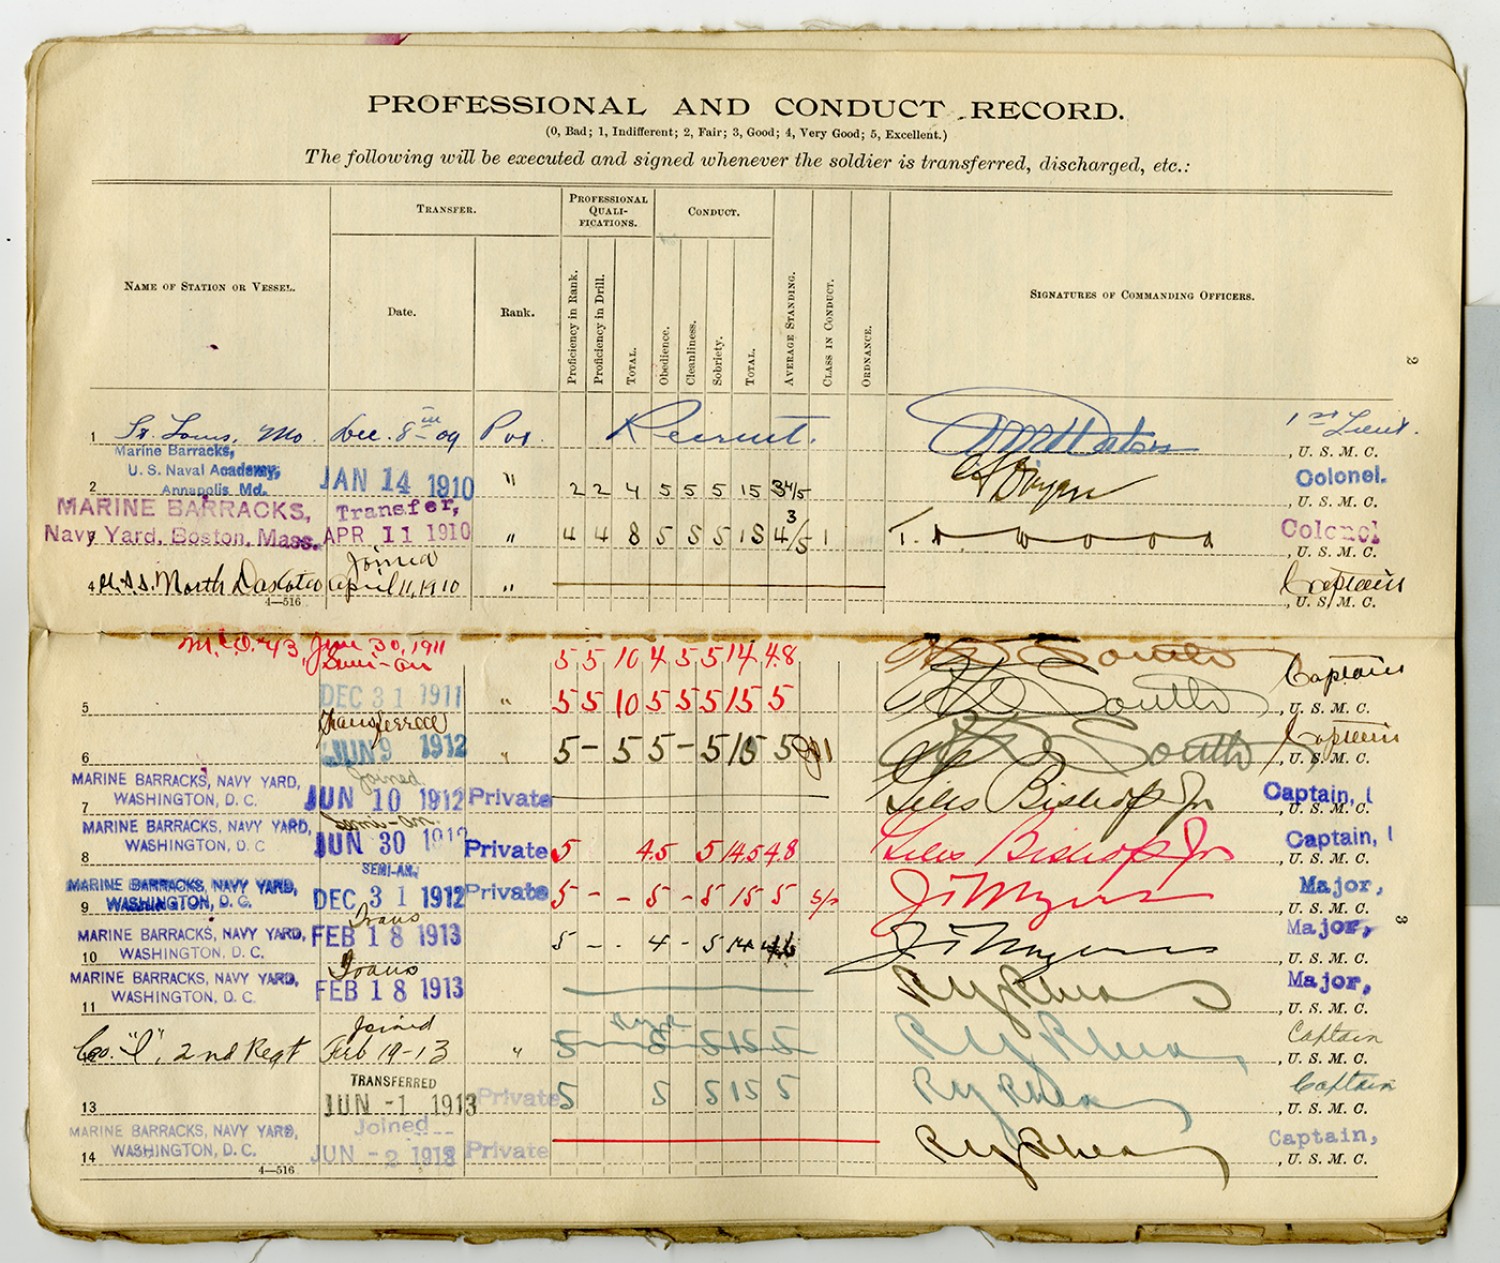 PROFESSIONAL AND CONDUCT RECORD.
(0, Bad; 1, Indifferent; 2, Fair; 3, Good; 4, Very Good; 5, Excellent.)
The following will be executed and signed whenever the soldier is transferred, discharged, etc.:
NAME OF STATION OR VESSEL.
TRANSFER.
Date.
Rank.
PROFESSIONAL QUALI-FICATIONS.
Proficiency in Rank.
Proficiency in Drill.
TOTAL.
CONDUCT.
Obedience.
Cleanliness.
Sobriety.
TOTAL.
AVERAGE STANDING.
CLASS IN CONDUCT.
ORDNANCE.
SIGNATURES OF COMMANDING OFFICERS.
2
1 St. Louis, Mo. Dec. 8th 09 Pvt. Recruit. 1st Lieut.
, U. S. M. C.
Marine Barracks,
U. S. Naval Academy,
Annapolis Md.
2 JAN 14 1910 " 2 2 4 5 5 5 15 3 4/5 Colonel.
, U. S. M. C.
MARINE BARRACKS,
Navy Yard, Boston, Mass.
Transfer,
APR 11 1910 " 4 4 8 5 5 5 15 4 3/5 1 T. N. Wood Colonel
, U. S. M. C.
Joined
4 U.S.S. North Dakota April 11, 1910 " Captain
, U. S. M. C.
4—516
M.C.O. 43, June 30, 1911
Semi-an 5 5 10 4 5 5 14 4.8 South
5 DEC 31 1911 " 5 5 10 5 5 5 15 5 South Captain
, U. S. M. C.
Transferred
6 JUN 9 1912 " 5 - 5 5 - 5 15 5 South Captain
, U. S. M. C.
MARINE BARRACKS, NAVY YARD,
WASHINGTON, D. C.
Joined
7 JUN 10 1912 Private Giles Bishop Jr Captain,
, U. S. M. C.
MARINE BARRACKS, NAVY YARD,
WASHINGTON, D. C
Semi-an.
8 JUN 30 1912 Private 5 4.5 5 14.5 4.8 Giles Bishop Jr Captain,
, U. S. M. C.
MARINE BARRACKS, NAVY YARD,
WASHINGTON, D. C.
SEMI-AN.
9 DEC 31 1912 Private 5 - - 5 - 5 15 5 J. T. Myers Major,
, U. S. M. C.
3
MARINE BARRACKS, NAVY YARD,
WASHINGTON, D. C.
Trans
10 FEB 18 1913 5 - - 4 - 5 14 J. T. Myers Major,
, U. S. M. C.
MARINE BARRACKS, NAVY YARD,
WASHINGTON, D. C.
Trans
11 FEB 18 1913 R Y Rhea Major,
, U. S. M. C.
Joined
Co. "I", 2nd Regt Feb 19-13 " 5 5 5 15 5 R Y Rhea Captain
, U. S. M. C.
TRANSFERRED
13 JUN -1 1913 Private 5 5 5 15 5 R Y Rhea Captain
, U. S. M. C.
MARINE BARRACKS, NAVY YARD,
WASHINGTON, D. C.
Joined
14 JUN -2 1913 Private R Y Rhea Captain,
, U. S. M. C.
4—516